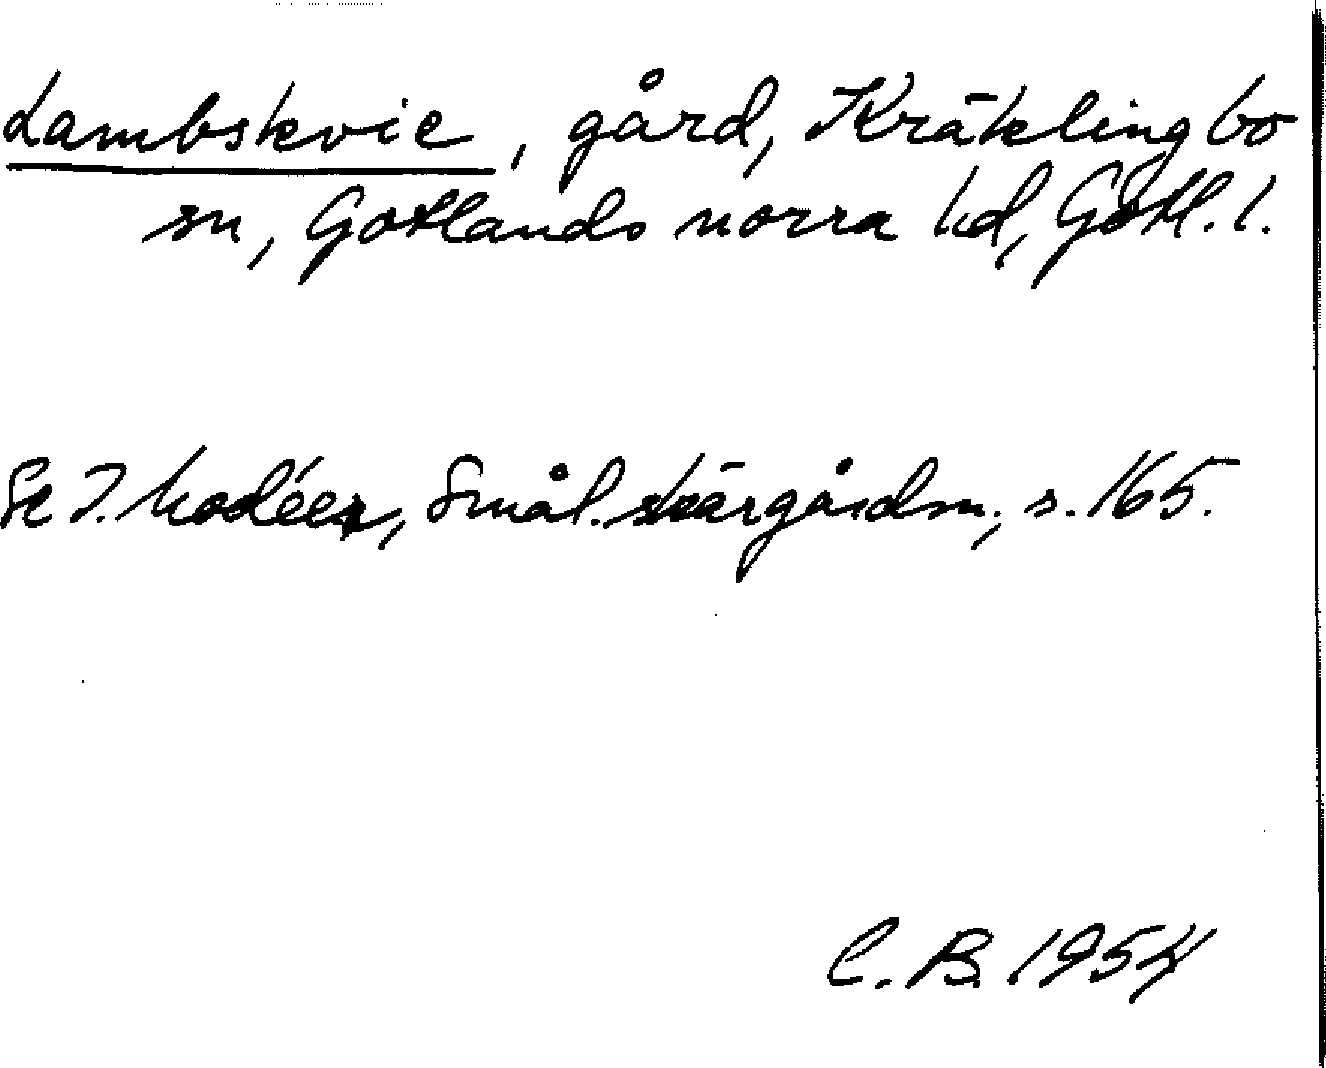 Lambskvie, gård, Kräklingbo
sn, Gotlands norra hd, Gotl. l.
Se I. Modéer, Smål. skärgårdsn., s. 165.
C. B. 1954